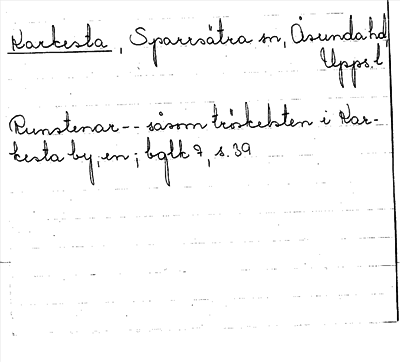 Karkesta, Sparrsätra sn, Åsunda hd,
Upps.l
Runstenar -- såsom tröskelsten i Kar-
kesta by, en; bglk 7, s. 39